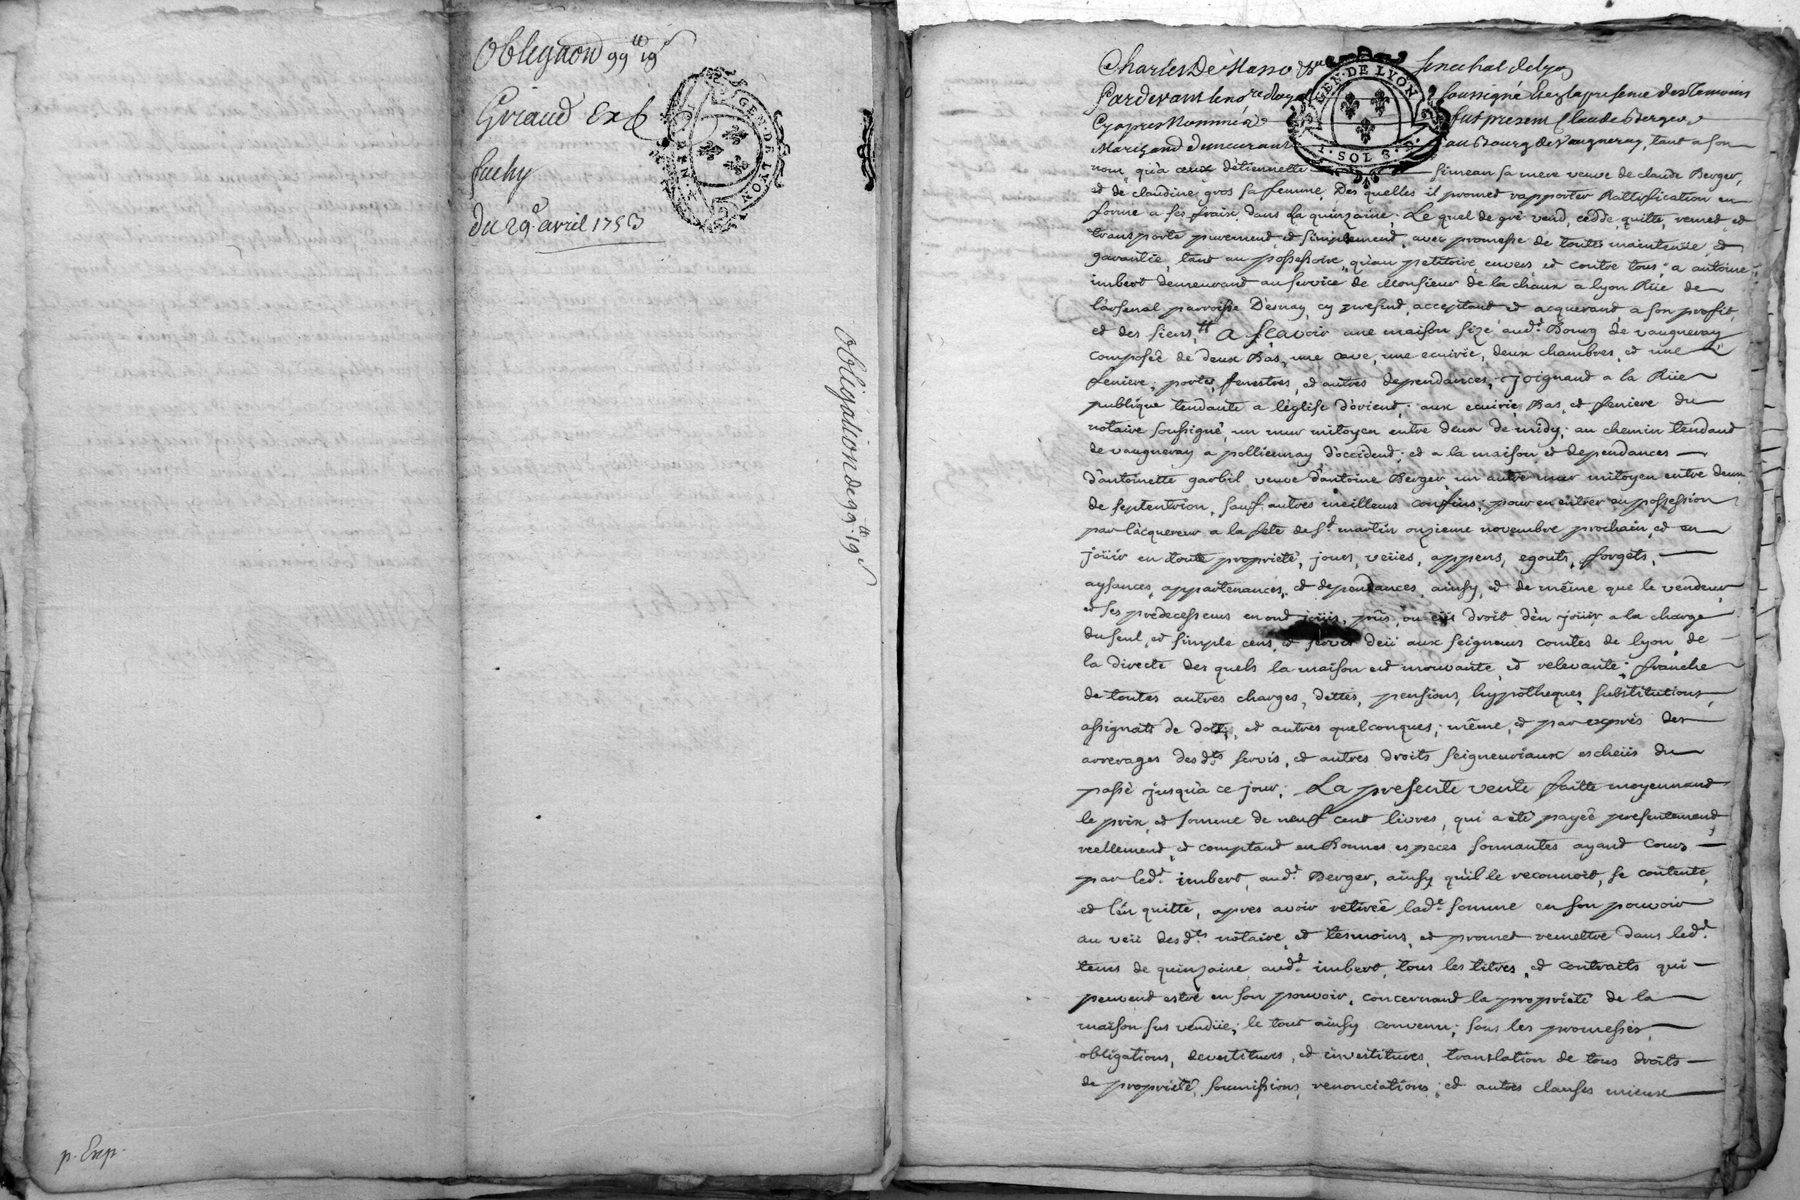 Obligaõn 99ᵗᵗ 19ˢ
Giraud Ex
fachy
Du 29ᵉ. avril 1753
GEN·DE LYON
Obligation de 99ᵗᵗ 19ˢ
p. Exp.
Charles De Masso senechal de lyon
GEN·DE LYON
1·SOL 8·D
Pardevant le noʳᵉ Royal soussigné et en la presence des temoins
Cy apres Nommés fut present Claude Berger
Marchand demeurant au Bourg de Vaugneray, tant a son
nom qu'à ceux d'étiennette simean sa mere veuve de claude Berger,
et de claudine gros sa femme, Des quelles il promet rapporter Rattiffication en
forme a ses fraix dans la quinzaine; Le quel de gré vend, cedde, quitte, remet, et
transporte purement, et simplement, avec promesse de toutte maintenüe, et
garantie, tant au possessoire, qu'au petitoire, envers, et contre tous; a antoine
imbert demeurant au service de Monsieur de la chaux a lyon Rüe de
l'arsenal parroisse D'esnay, cy present, acceptant et acquerant, a son profit,
et des siens, A sçavoir une maison size aud.ᵗ Bourg de vaugneray
composée de deux Bas, une cave, une ecuirie, deux chambres, et une
feniere, portes, fenestres, et autres dependances, joignant a la Rüe
publique tendante a l'église d'orient; aux ecuirie, Bas, et feniere du
notaire soussigné, un mur mitoyen entre deux de midy; au chemin tendant
de vaugneray a pollionnay d'occident; et a la maison et dependances
d'antoinette garbil veuve d'antoine Berger, un autre mur mitoyen entre deux
de septentrion, sauf autres meilleurs confins; pour en entrer en possession
par l'acquereur a la fete de Sᵗ martin onzieme novembre prochain, et en
joüir en toute proprieté, jours, veües, appens, egouts, forgets,
aysances, appartenances, et dependances, ainsy, et de même que le vendeur,
et ses predecesseurs en ont joüis, pûs, ou eüs droit d'en joüir a la charge
du seul, et simple cens, et servis deü aux seigneurs comtes de lyon, de
la directe des quels la maison est mouvante, et relevante; franche
de toutes autres charges, dettes, pensions, hypotheques, substitutions,
assignats de dots, et autres quelconques; même, et par exprés des
arrerages desd.ᵗˢ servis, et autres droits seigneuriaux escheüs du
passé jusqu'a ce jour; La presente vente faitte moyennant
le prix, et somme de neuf cent livres, qui a été payée presentement,
reellement, et comptant en Bonnes especes sonnantes ayant cours
par led.ᵗ imbert, aud.ᵗ Berger, ainsy qu'il le reconnoit, se contente,
et l'en quitte, apres avoir retirée lad.ᵉ somme en son pouvoir
au veü desd.ᵗˢ notaire, et tesmoins, et promet remettre dans led.ᵗ
tems de quinzaine aud.ᵗ imbert, tous les titres, et contracts qui
peuvent estre en son pouvoir, concernant la proprieté de la
maison sus vendüe; le tout ainsy convenu; sous les promesses,
obligations, devestitures, et investitures, translation de tous droits
de proprieté, soumissions, renonciations, et autres clauses mieux